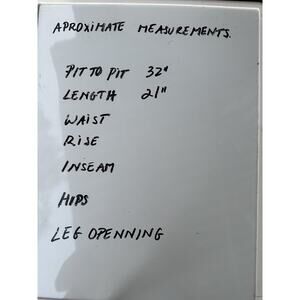 APROXIMATE MEASUREMENTS.
PIT TO PIT 32"
LENGTH 21"
WAIST
RISE
INSEAM
HIPS
LEG OPENNING